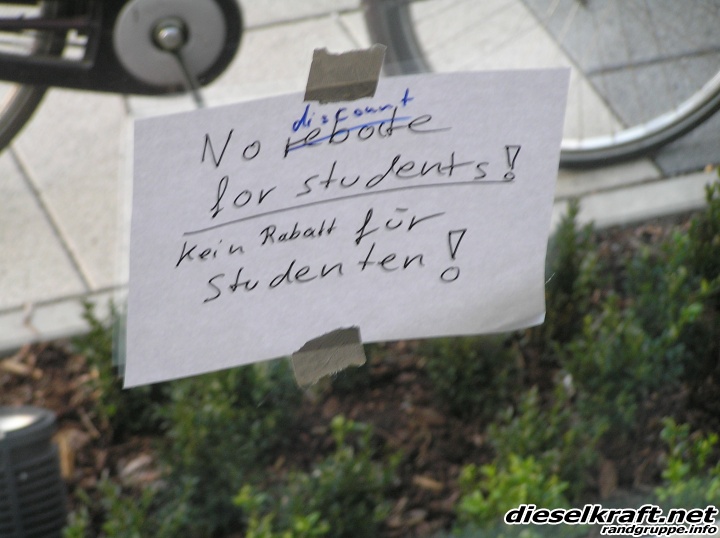 discount
No rebate
for students!
Kein Rabatt für
Studenten!
dieselkraft.net
randgruppe.info